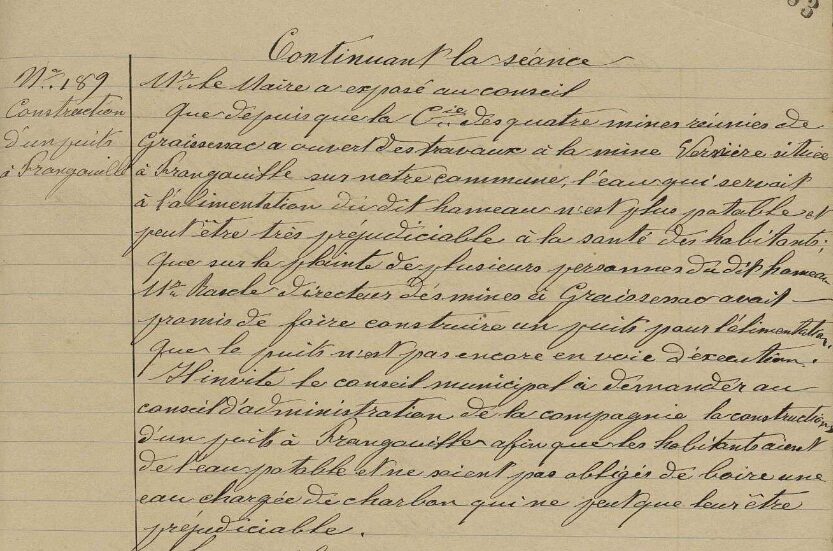 33
Continuant la séance
No. 189
Construction
d'un puits
à Frangouille
Mr. le Maire a exposé au conseil
que depuis que la Cie. des quatre mines réunies de
Graissessac a ouvert des travaux à la mine Vernière située
à Frangouille sur notre commune, l'eau qui servait
à l'alimentation du dit hameau n'est plus potable et
peut être très préjudiciable à la santé des habitants;
que sur la plainte de plusieurs personnes du dit hameau
Mr. directeur des mines à Graissessac avait
promis de faire construire un puits pour l'alimentation,
que le puits n'est pas encore en voie d'exécution.
Il invite le conseil municipal à demander au
conseil d'administration de la compagnie la construction
d'un puits à Frangouille afin que les habitants aient
de l'eau potable et ne soient pas obligés de boire une
eau chargée de charbon qui ne peut que leur être
préjudiciable.